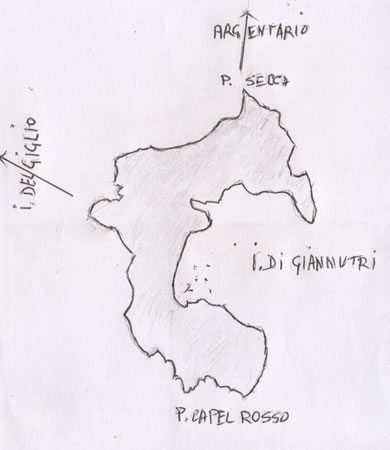 ARGENTARIO
P. SECCA
i. DEL GIGLIO
i. DI GIANNUTRI
P. CAPEL ROSSO